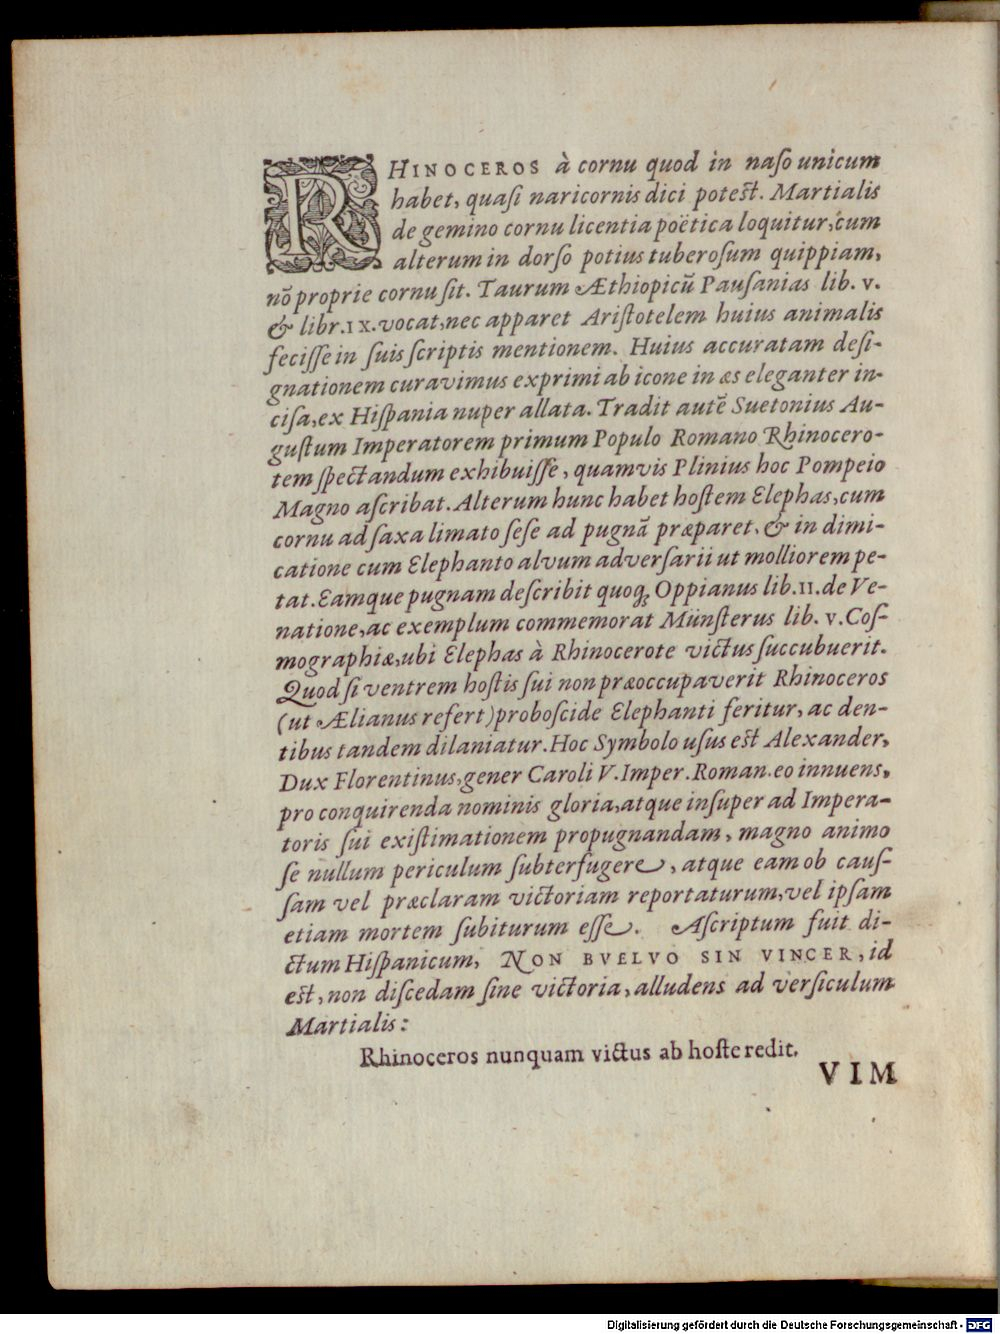 RHINOCEROS à cornu quod in naſo unicum
habet, quaſi naricornis dici poteſt. Martialis
de gemino cornu licentia poëtica loquitur, cùm
alterum in dorſo potius tuberoſum quippiam,
nō proprie cornu ſit. Taurum Æthiopicū Pauſanias lib. v.
& libr. IX. vocat, nec apparet Ariſtotelem huius animalis
feciſſe in ſuis ſcriptis mentionem. Huius accuratam deſi-
gnationem curavimus exprimi ab icone in æs eleganter in-
ciſa, ex Hiſpania nuper allata. Tradit autē Suetonius Au-
guſtum Imperatorem primum Populo Romano Rhinocero-
tem ſpectandum exhibuiſſe, quamvis Plinius hoc Pompeio
Magno aſcribat. Alterum hunc habet hoſtem Elephas, cum
cornu ad ſaxa limato ſeſe ad pugnā præparet, & in dimi-
catione cum Elephanto alvum adverſarii ut molliorem pe-
tat. Eamque pugnam deſcribit quoq; Oppianus lib. II. de Ve-
natione, ac exemplum commemorat Münſterus lib. v. Coſ-
mographiæ, ubi Elephas à Rhinocerote victus ſuccubuerit.
Quod ſi ventrem hoſtis ſui non præoccupaverit Rhinoceros
(ut Ælianus refert) proboſcide Elephanti feritur, ac den-
tibus tandem dilaniatur. Hoc Symbolo uſus eſt Alexander,
Dux Florentinus, gener Caroli V. Imper. Roman. eo innuens,
pro conquirenda nominis gloria, atque inſuper ad Impera-
toris ſui exiſtimationem propugnandam, magno animo
ſe nullum periculum ſubterfugere, atque eam ob cauſ-
ſam vel præclaram victoriam reportaturum, vel ipſam
etiam mortem ſubiturum eſſe. Aſcriptum fuit di-
ctum Hiſpanicum, NON BVELVO SIN VINCER, id
eſt, non diſcedam ſine victoria, alludens ad verſiculum
Martialis:
Rhinoceros nunquam victus ab hoſte redit.
VIM
Digitalisierung gefördert durch die Deutsche Forschungsgemeinschaft - DFG